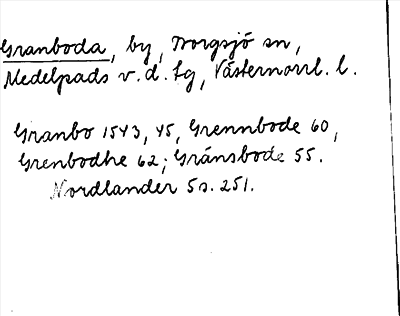 Granboda, by, Torgsjö sn,
Medelpads v. d. tg, Västernorrl. l.
Granbo 1543, 45, Grennbode 60,
Grenbodhe 62; Gränsbode 55.
Nordlander 5s. 251.